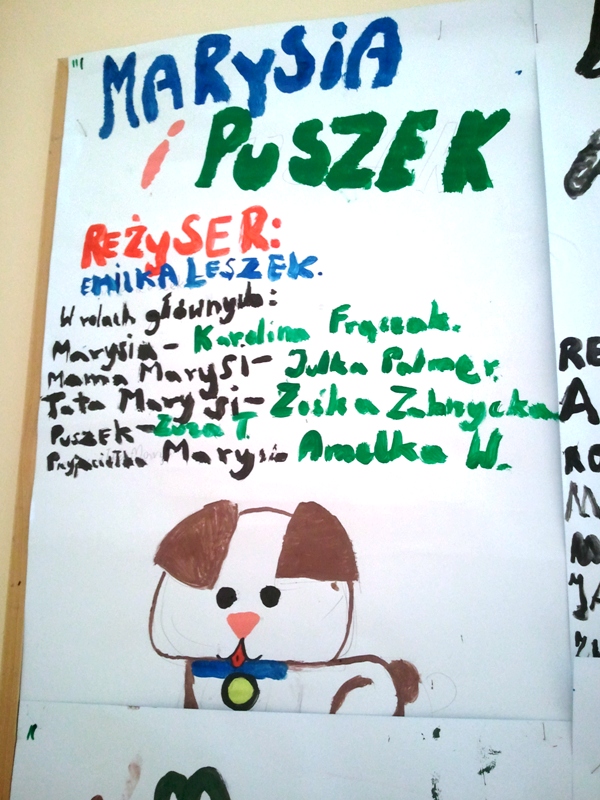 MARYSIA
i PUSZEK
REŻySER:
EMILKA LESZEK.
W rolach głównych:
Marysia - Karolina Frączak.
Mama MarySi - Julka Palmer.
Tata Marysi - Zośka Zabrzycka
Puszek - Zuza T.
Przyjaciółka Marysi Amelka W.
RE
A